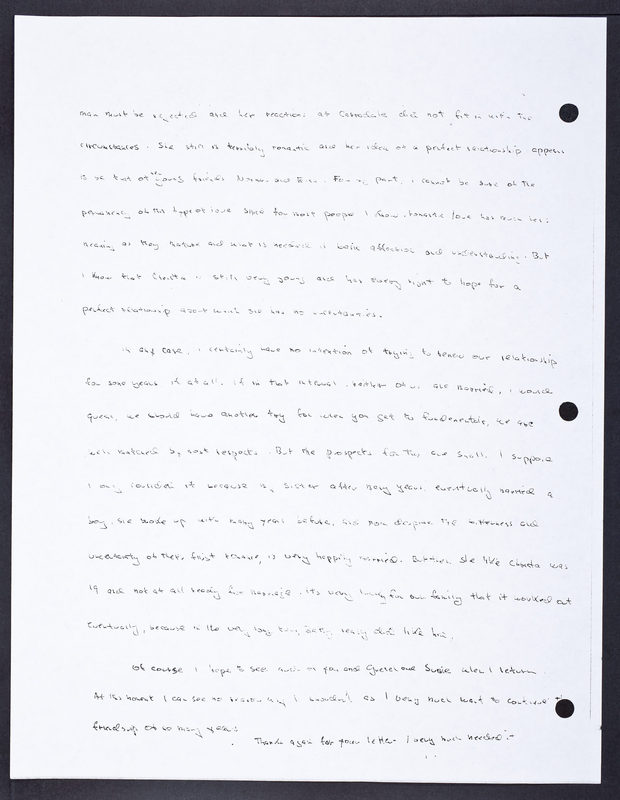 man must be rejected and her reactions at Carradale did not fit in with the
circumstances. She still is terribly romantic and her idea of a perfect relationship appears
to be that of young friends Norman and. For my part, I cannot be sure of the
permanency of this type of love since for most people I know, romantic love has much less
meaning as they mature and what is needed is both affection and understanding. But
I know that Christa is still very young and has every right to hope for a
perfect relationship about which she has no uncertainties.
In any case, I certainly have no intention of trying to renew our relationship
for some years if at all. If in that interval neither of us are married, I would
guess, we should have another try for when you get to fundamentals, we are
well matched by most respects. But the prospects for this are small. I suppose
I only consider it because my sister after many years, eventually married a
boy, she broke up with many years before, and now despite the bitterness and
uncertainty of their first, is very happily married. But then she like Christa was
19 and not at all ready for marriage. It's very lucky for our family that it worked out
eventually, because in the very long run, really did like him.
Of course I hope to see much of you and and Susie when I return.
At this moment I can see no reason why I wouldn't as I very much want to continue the
friendship of so many years.
Thanks again for your letter I very much needed it